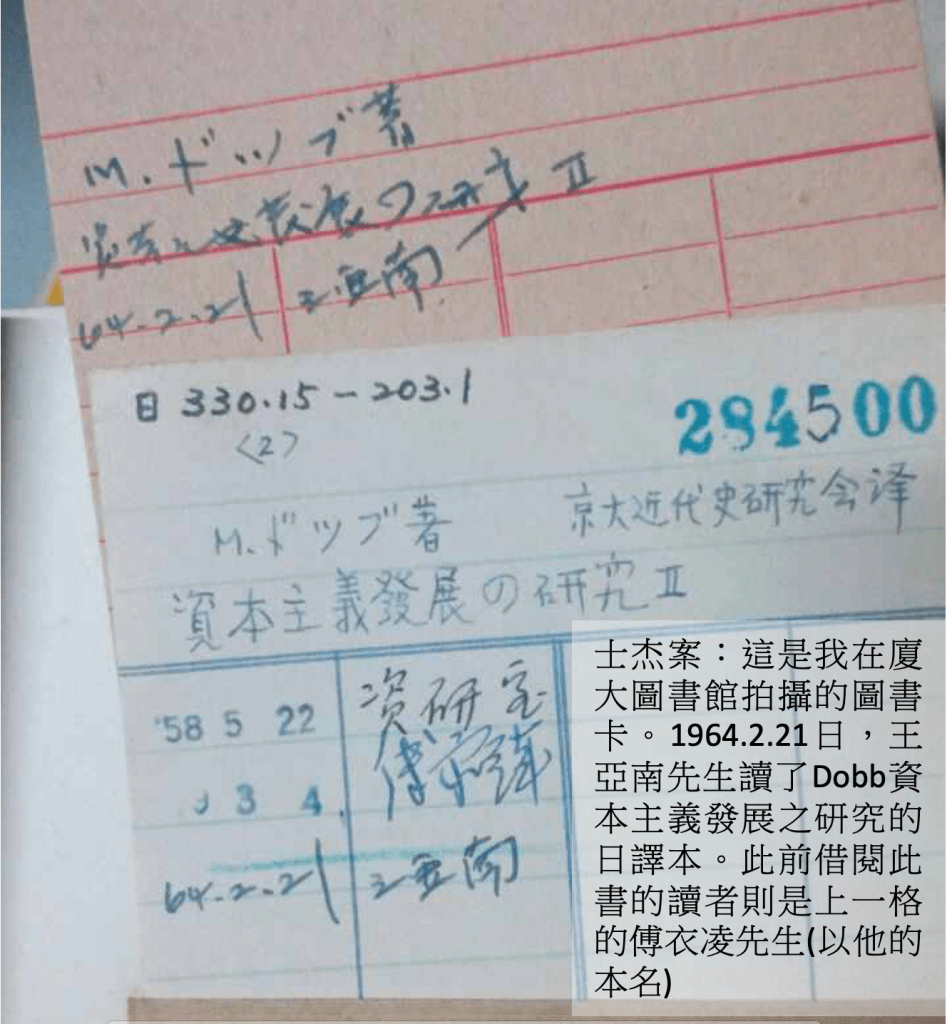 M.ドッブ著
資本主義發展の研究 II
64.2.21 王亞南
日 330.15-203.1
<2>
284500
M.ドッブ著 京大近代史研究会译
資本主義發展の研究 II
'58 5 22 资研室
3 4.
64.2.21 王亞南
士杰案：這是我在廈
大圖書館拍攝的圖書
卡。1964.2.21日，王
亞南先生讀了Dobb資
本主義發展之研究的
日譯本。此前借閱此
書的讀者則是上一格
的傅衣凌先生(以他的
本名)